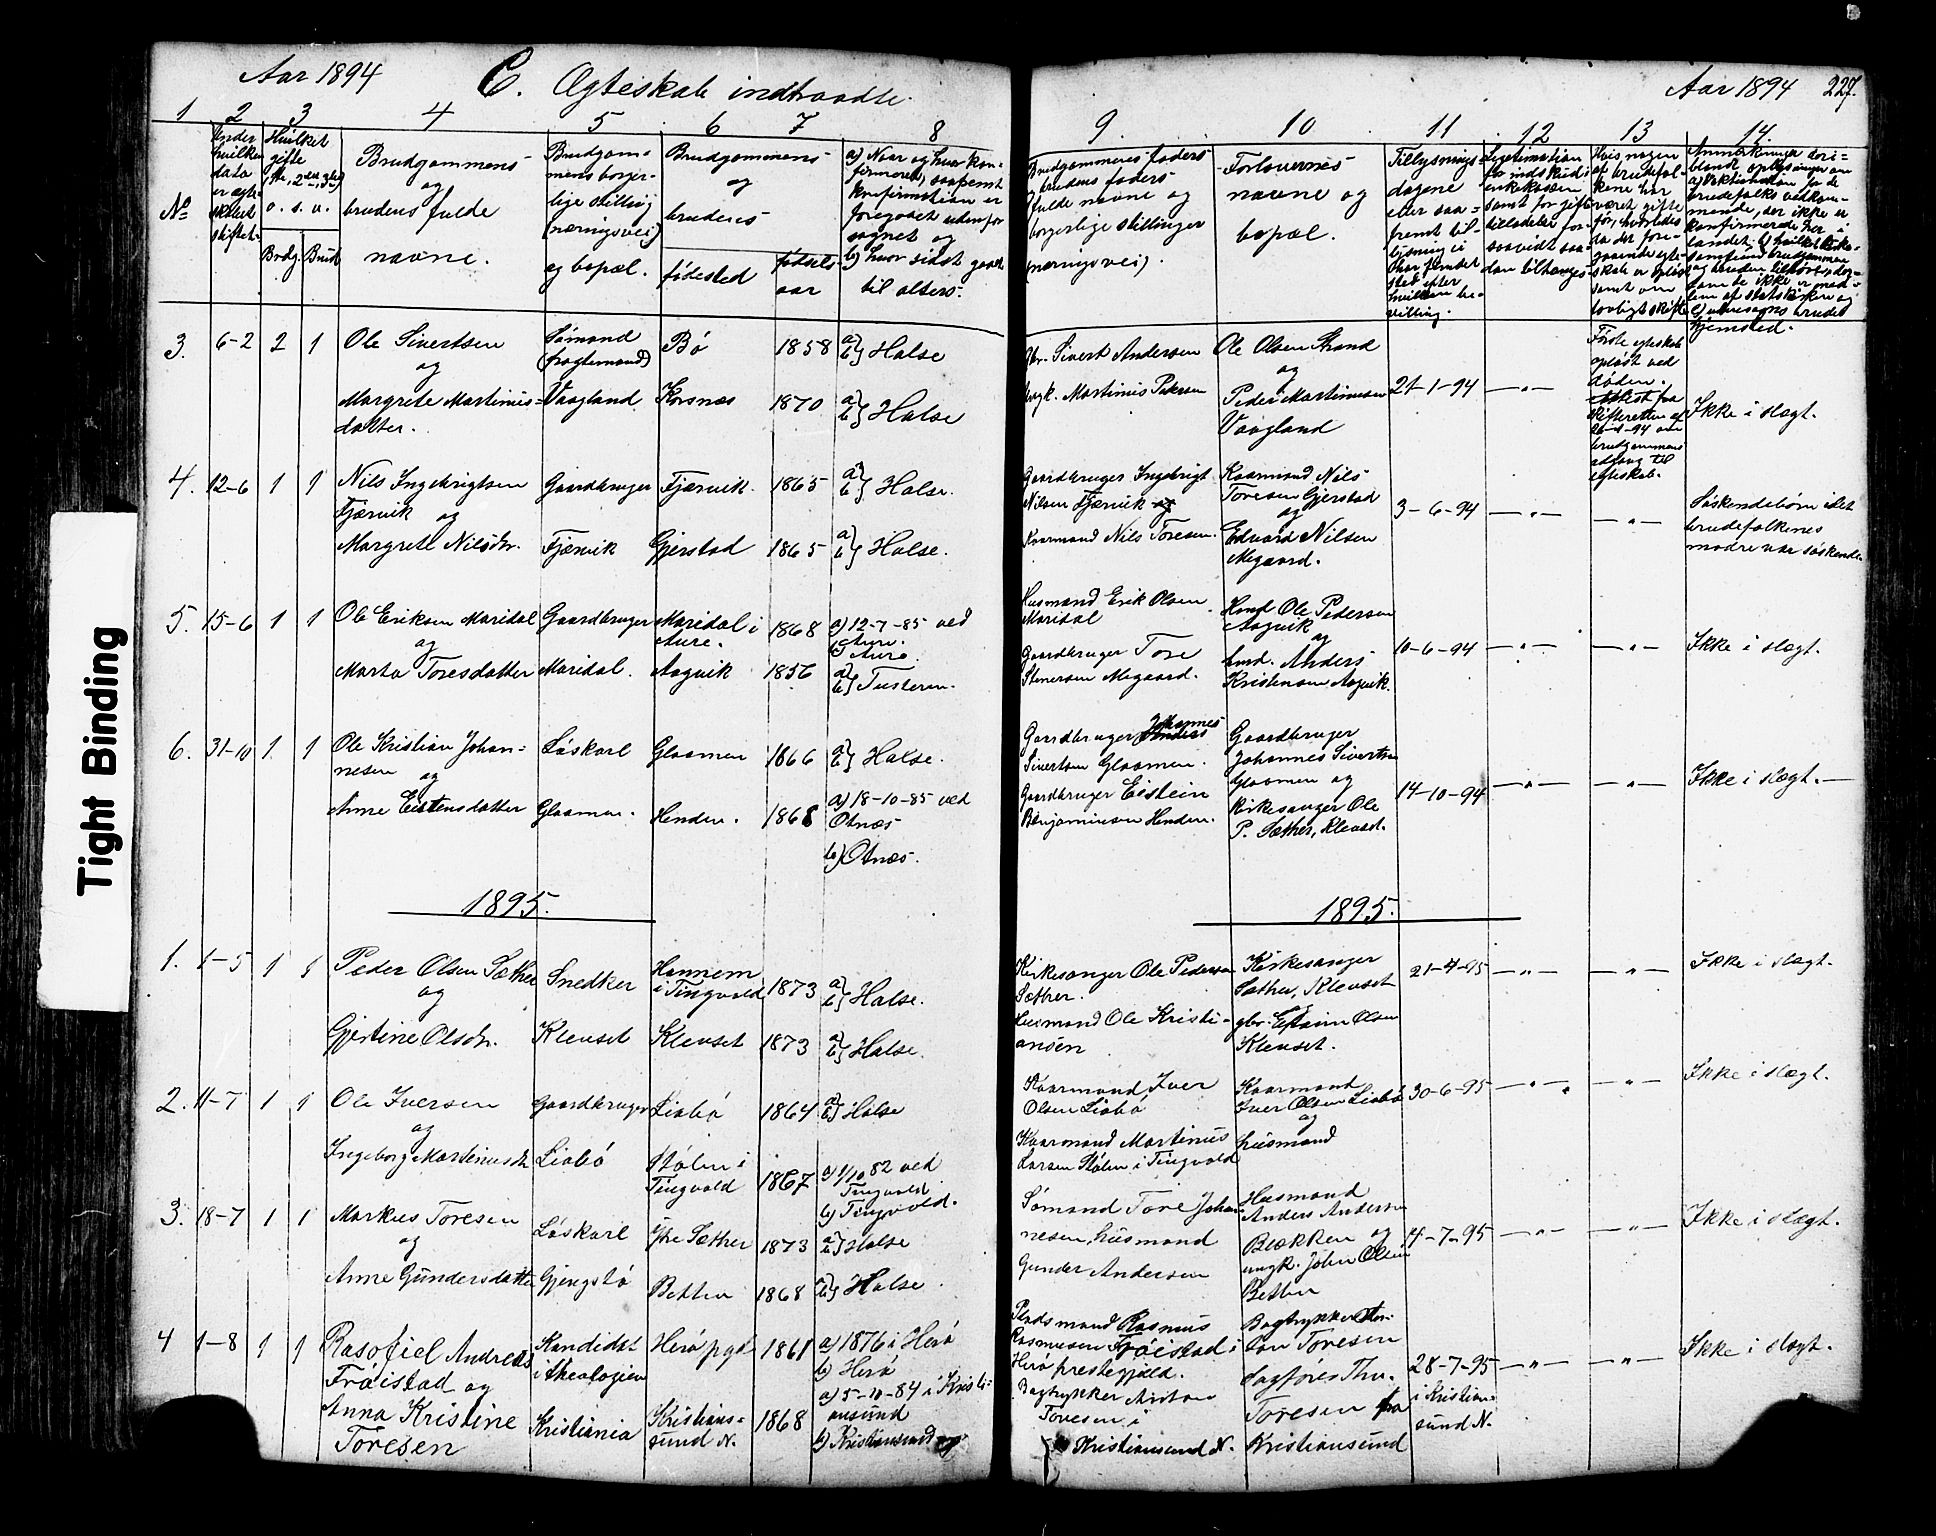 Aar 1894
C. Ægteskab indtraadte.
Aar 1894
227.
1 2 3 4 5 6 7 8
9. 10 11 12 13 14.
No
Under hvilken data er ægteskabet stiftet.
Hvilket gifte
o. s. v.
Brdg. Brud
Brudgommens
og
brudens fulde
navne.
Brudgom-
mens borger-
lige stilling
(næringsvei)
og bopæl.
Brudgommens
og
brudens
fødested
fødsels-
aar
a) Naar og hvor kon-
firmeret, saafremt
konfirmation er
foregaaet udenfor
sognet og
b) hvor sidst gaaet
til alters.
Brudgommens faders
og brudens faders
fulde navne og
borgerlige stillinger
(næringsvei).
Forlovernes
navne og
bopæl.
Tillysnings-
dagene
eller saa-
fremt til-
lysning ei
har fundet
sted efter
hvilken be-
villing.
3. 6-2 2 1
Ole Sivertsen
og
Margrete Martinus-
datter.
Sømand
(fragtemand)
Vaagland
Bø
Korsnæs
1858
1870
a) b) Halse
a) b) Halse
gbr. Sivert Andersen
Martinus Petersen
Ole Olsen Strand
og
Peder Martinusen
Vaagland
21-1-94
— " —
Første egteskab
opløst ved
døden.
Attest fra
skifteretten af
94 om
brudgommens
adgang til
egteskab.
Ikke i slægt.
4. 12-6 1 1
Nils Ingebrigtsen
Fjærvik og
Margrete Nilsdr.
Gaardbruger
Fjærvik
Fjærvik.
Gjerstad
1865
1865
a) b) Halse.
a) b) Halse.
Gaardbruger Ingebrigt
Nilsen Fjærvik og
Kaarmand Nils Toresen.
Kaarmand Nils
Toresen Gjerstad
og
Edvard Nilsen
Megaard.
3-6-94
— " —
— " —
Søskendebørn idet
brudefolkenes
mødre var søskende.
5. 15-6 1 1
Ole Eriksen Maridal
og
Marta Toresdatter
Gaardbruger
Maridal.
Maridal i
Aure.
Aagvik
1868
1856
a) 12-7-85 ved
Aure.
b) Aure
a) b) Tusteren.
Husmand Erik Olsen
Maridal
Gaardbruger Tore
Stenersen Megaard.
Husmd Ole Pedersen
Aagvik
og
husmd. Anders
Kristensen Aagvik.
10-6-94
— " —
— " —
Ikke i slægt.
6. 31-10 1 1
Ole Kristian Johan-
nesen
og
Anne Eistensdatter
Løskarl
Glaamen.
Glaamen
Henden.
1866
1868
a) b) Halse.
a) 18-10-85 ved
Otnæs
b) Otnæs.
Gaardbruger Johannes
Sivertsen Glaamen.
Gaardbruger Eistein
Benjaminsen Henden.
Gaardbruger
Johannes Sivertsen
Glaamen og
Kirkesanger Ole
P. Sæther, Klevset.
14-10-94
— " —
— " —
Ikke i slægt. —
1895.
1895.
1. 1-5 1 1
Peder Olsen Sæther
og
Gjertine Olsdr.
Snedker
Klevset
Hannem
i Tingvold
Klevset
1873
1873
a) b) Halse.
a) b) Halse.
Kirkesanger Ole Pedersen
Sæther.
Husmand Ole Kristi-
ansen
Kirkesanger
Sæther, Klevset
gbr. Efraim Olsen
Klevset.
21-4-95
— " —
— " —
Ikke i slægt.
2. 11-7 1 1
Ole Iversen
og
Ingeborg Martinusdr.
Gaardbruger
Liabø
Liabø
Stølen i
Tingvold
1864
1867
a) b) Halse
a) 1/10 82 ved
Tingvold
b) Tingvold.
Kaarmand Iver
Olsen Liabø
Kaarmand Martinus
Larsen Stølen i Tingvold
Kaarmand
Iver Olsen Liabø
og
husmand
30-6-95
— " —
— " —
Ikke i slægt.
3. 18-7 1 1
Markus Toresen
og
Anne Gundersdatter
Løskarl
Gjengstø
Ytre Sæther
Betten
1873
1868
a) b) Halse
a) b) Halse.
Sømand Tore Johan-
nesen, husmand
Gunder Andersen
Husmand
Anders Andersen
Bækken og
ungk. John Olsen
Betten
14-7-95
— " —
— " —
Ikke i slægt.
4 1-8 1 1
Rasofiel Andreas
Frøistad og
Anna Kristine
Toresen
Kandidat
i theologien
Kristiania
Herø pgd
Kristian-
sund N.
1861
1868
a) 1876 i Herø
b) Herø
a) 5-10-84 i Kristi-
ansund
b) Kristiansund
Pladsmand Rasmus
Rasmussen Frøistad i
Herø prestegjæld.
Bogtrykker Anton
Toresen i
Kristiansund N.
Bogtrykker An-
ton Toresen
Sagfører Thv.
Toresen fra
Kristiansund
28-7-95
i Kristian-
sund N.
— " —
— " —
Ikke i slægt.
Tight Binding